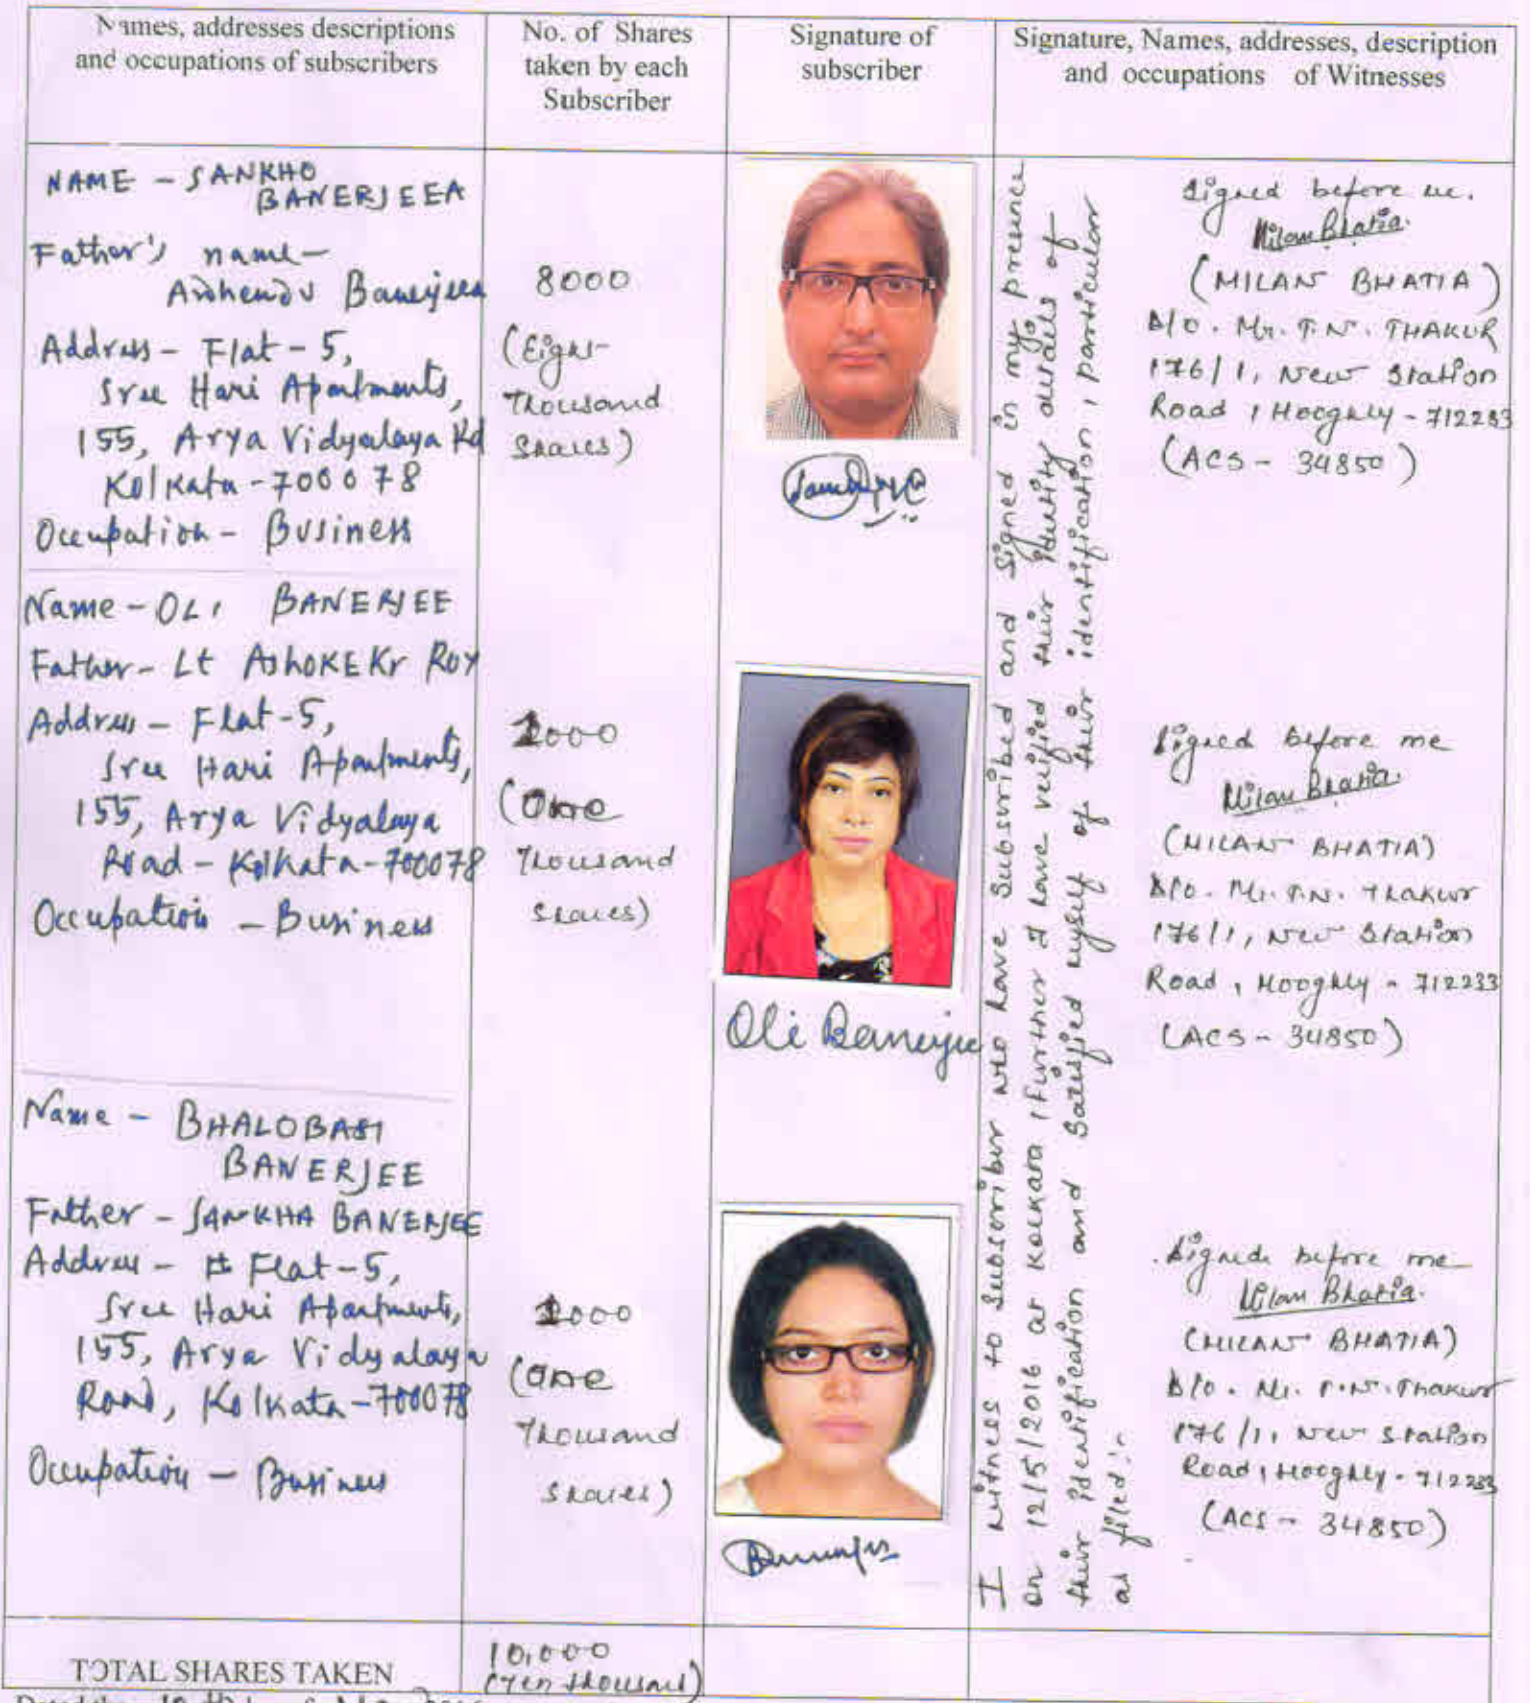 Names, addresses descriptions
and occupations of subscribers
No. of Shares
taken by each
Subscriber
Signature of
subscriber
Signature, Names, addresses, description
and occupations of Witnesses
NAME - SANKHO
BANERJEEA
Father's name-
Ardhendu Banerjeea
Address - Flat - 5,
Sree Hari Apartments,
155, Arya Vidyalaya Rd
Kolkata - 700078
Occupation - Business
8000
(Eight
Thousand
Shares)
Signed before me.
Milan Bhatia.
(MILAN BHATIA)
D/O. Mr. T.N. THAKUR
176/1, New Station
Road, Hooghly - 712233
(ACS - 34850)
Name - OLI BANERJEE
Father - Lt AshOKE Kr ROY
Address - Flat - 5,
Sree Hari Apartments,
155, Arya Vidyalaya
Road - Kolkata - 700078
Occupation - Business
1000
(One
Thousand
Shares)
Oli Banerjee
Signed before me
Milan Bhatia.
(MILAN BHATIA)
D/O. Mr. T.N. Thakur
176/1, New Station
Road, Hooghly - 712233
(ACS - 34850)
Name - BHALOBASI
BANERJEE
Father - SANKHA BANERJEE
Address - Flat - 5,
Sree Hari Apartments,
155, Arya Vidyalaya
Road, Kolkata - 700078
Occupation - Business
1000
(One
Thousand
Shares)
Signed before me
Milan Bhatia.
(MILAN BHATIA)
D/O. Mr. T.N. Thakur
176/1, New Station
Road, Hooghly - 712233
(ACS - 34850)
I witness to Subscriber who have Subscribed and Signed in my presence
on 12/5/2016 at Kolkata, Further I have verified their Identity details of
their Identification and Satisfied myself of their identification, particular
as filed:-
TOTAL SHARES TAKEN
10,000
(Ten thousand)